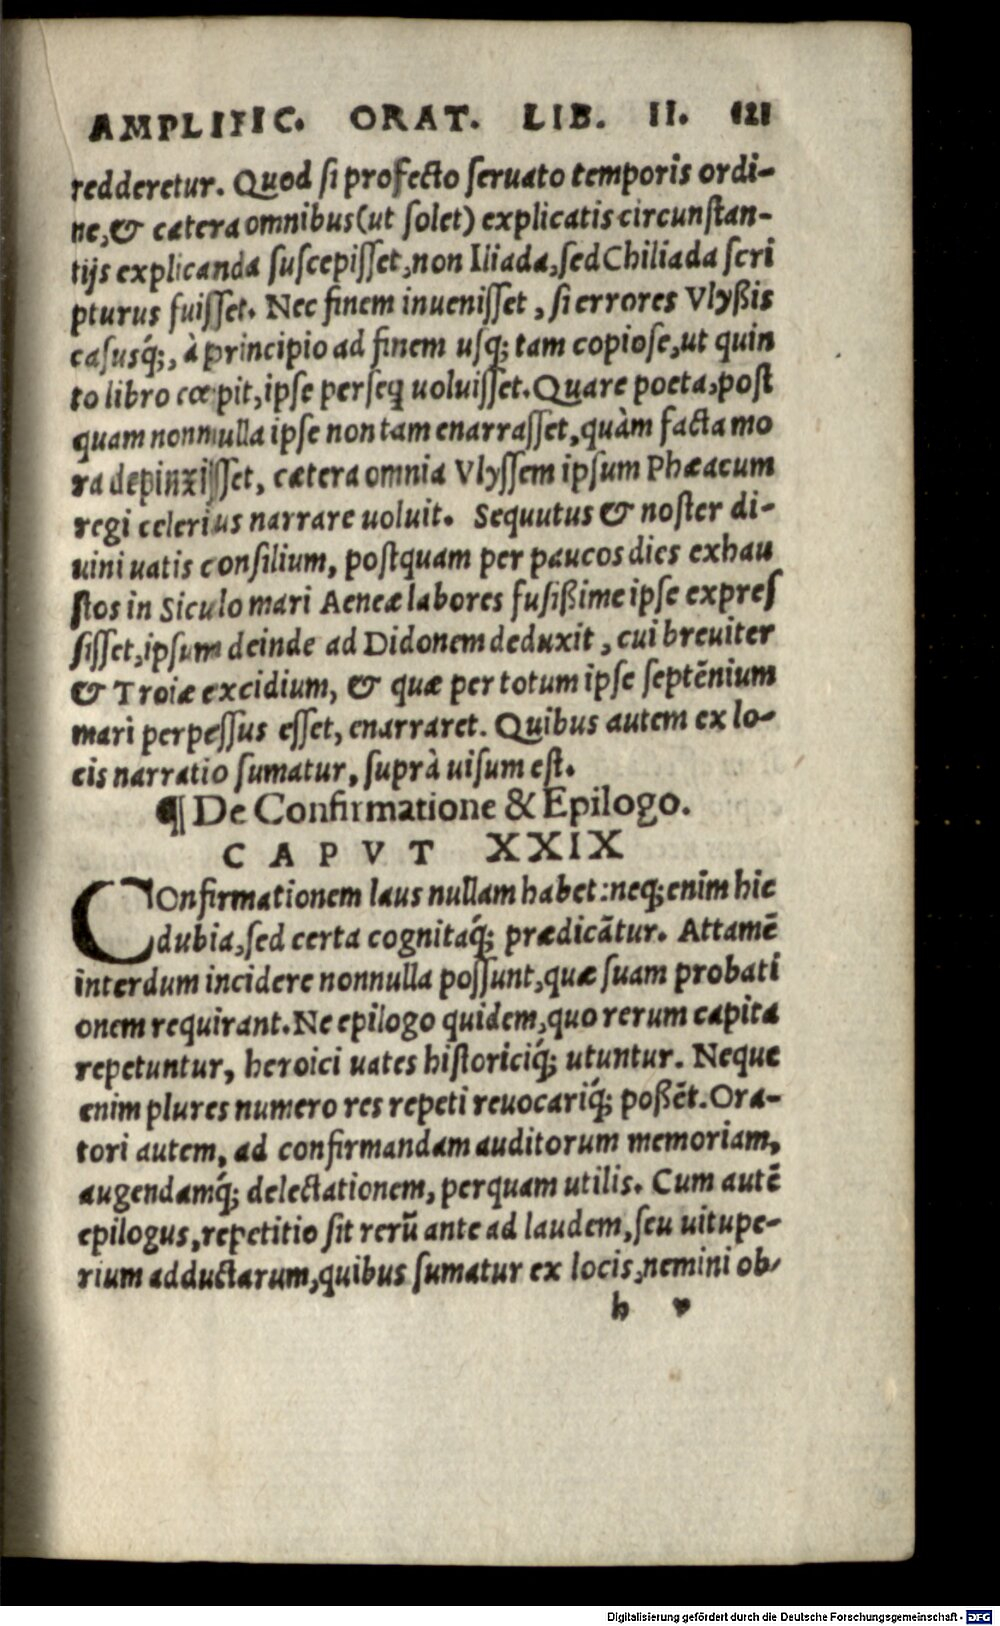 AMPLIFIC. ORAT. LIB. II. 121
redderetur. Quod ſi profecto ſeruato temporis ordi-
ne, & cætera omnibus (ut ſolet) explicatis circunſtan-
tijs explicanda ſuſcepiſſet, non Iliada, ſed Chiliada ſcri
pturus fuiſſet. Nec finem inueniſſet, ſi errores Vlyßis
caſusq́;, à principio ad finem uſq; tam copioſe, ut quin
to libro cœpit, ipſe perſeq̃ uoluiſſet. Quare poeta, poſt
quam nonnulla ipſe non tam enarraſſet, quàm facta mo
ra depinxiſſet, cætera omnia Vlyſſem ipſum Phæacum
regi celerius narrare uoluit. Sequutus & noſter di-
uini uatis conſilium, poſtquam per paucos dies exhau
ſtos in Siculo mari Aeneæ labores fuſißime ipſe expreſ
ſiſſet, ipſum deinde ad Didonem deduxit, cui breuiter
& Troiæ excidium, & quæ per totum ipſe septēnium
mari perpeſſus eſſet, enarraret. Quibus autem ex lo-
cis narratio ſumatur, ſuprà uiſum eſt.
¶ De Confirmatione & Epilogo.
CAPVT XXIX
COnfirmationem laus nullam habet: neq; enim hic
dubia, ſed certa cognitaq́; prædicātur. Attamē
interdum incidere nonnulla poſſunt, quæ ſuam probati
onem requirant. Ne epilogo quidem, quo rerum capita
repetuntur, heroici uates hiſtoriciq́; utuntur. Neque
enim plures numero res repeti reuocariq́; poßēt. Ora-
tori autem, ad confirmandam auditorum memoriam,
augendamq́; delectationem, perquam utilis. Cum autē
epilogus, repetitio ſit rerū ante ad laudem, ſeu uitupe-
rium adductarum, quibus ſumatur ex locis, nemini ob-
h v
Digitalisierung gefördert durch die Deutsche Forschungsgemeinschaft - DFG